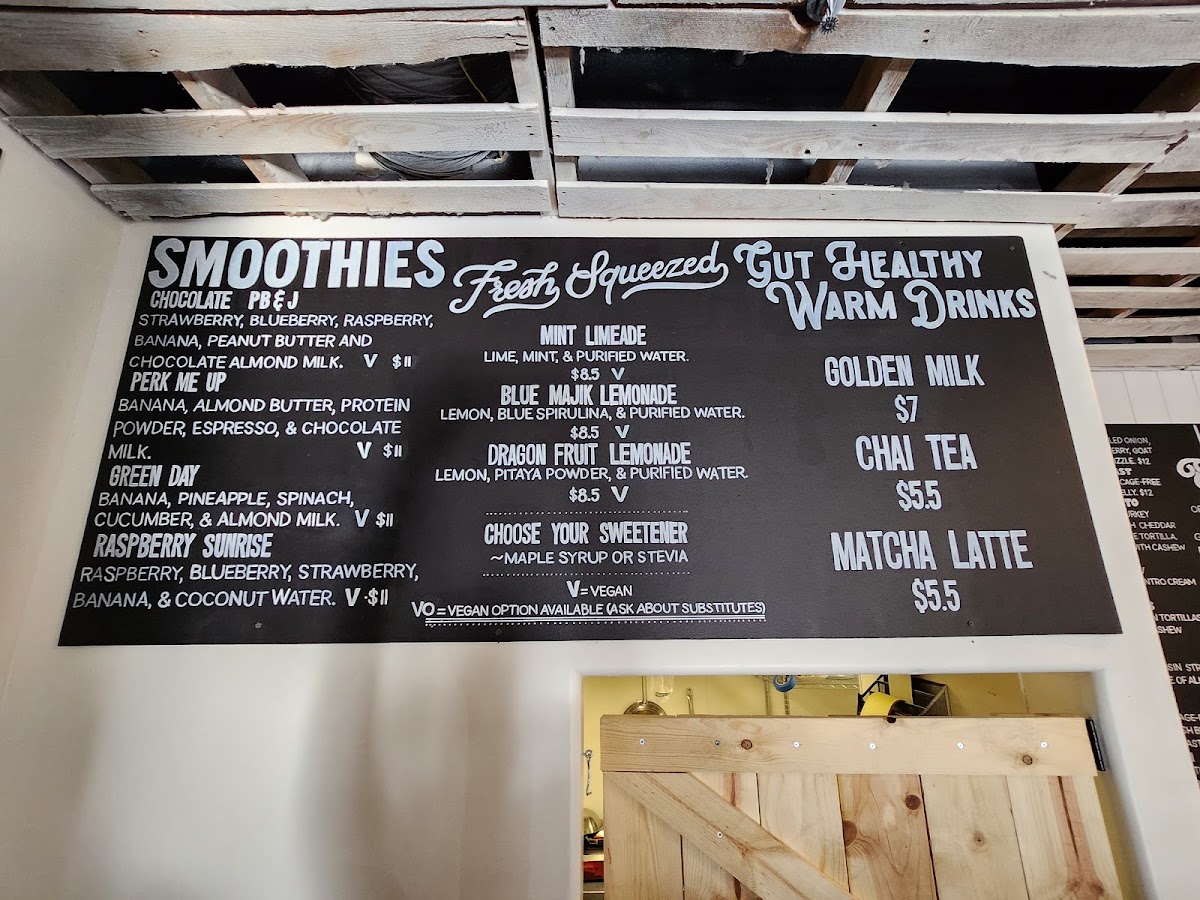 SMOOTHIES
CHOCOLATE PB & J
STRAWBERRY, BLUEBERRY, RASPBERRY,
BANANA, PEANUT BUTTER AND
CHOCOLATE ALMOND MILK. V $11
PERK ME UP
BANANA, ALMOND BUTTER, PROTEIN
POWDER, ESPRESSO, & CHOCOLATE
MILK. V $11
GREEN DAY
BANANA, PINEAPPLE, SPINACH,
CUCUMBER, & ALMOND MILK. V $11
RASPBERRY SUNRISE
RASPBERRY, BLUEBERRY, STRAWBERRY,
BANANA, & COCONUT WATER. V $11
Fresh Squeezed
MINT LIMEADE
LIME, MINT, & PURIFIED WATER.
$8.5 V
BLUE MAJIK LEMONADE
LEMON, BLUE SPIRULINA, & PURIFIED WATER.
$8.5 V
DRAGON FRUIT LEMONADE
LEMON, PITAYA POWDER, & PURIFIED WATER.
$8.5 V
CHOOSE YOUR SWEETENER
~MAPLE SYRUP OR STEVIA
V = VEGAN
VO = VEGAN OPTION AVAILABLE (ASK ABOUT SUBSTITUTES)
GUT HEALTHY
WARM DRINKS
GOLDEN MILK
$7
CHAI TEA
$5.5
MATCHA LATTE
$5.5
LED ONION,
ERRY, GOAT
ZZLE. $12
AST
CAGE-FREE
ELLY. $12
TO
URKEY
H CHEDDAR
E TORTILLA.
WITH CASHEW
NTRO CREAM
N TORTILLAS
SHEW
SIN STR
E OF AL